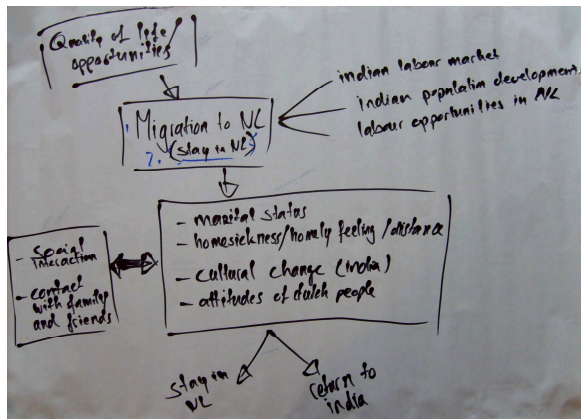 Quality of life
opportunities
indian labour market
indian population development
labour opportunities in NL
1. Migration to NL
2. (stay in NL)
- marital status
- homesickness/homely feeling/distance
- cultural change (india)
- attitudes of dutch people
- social
interaction
- contact
with family
and friends
stay in
NL
return to
india